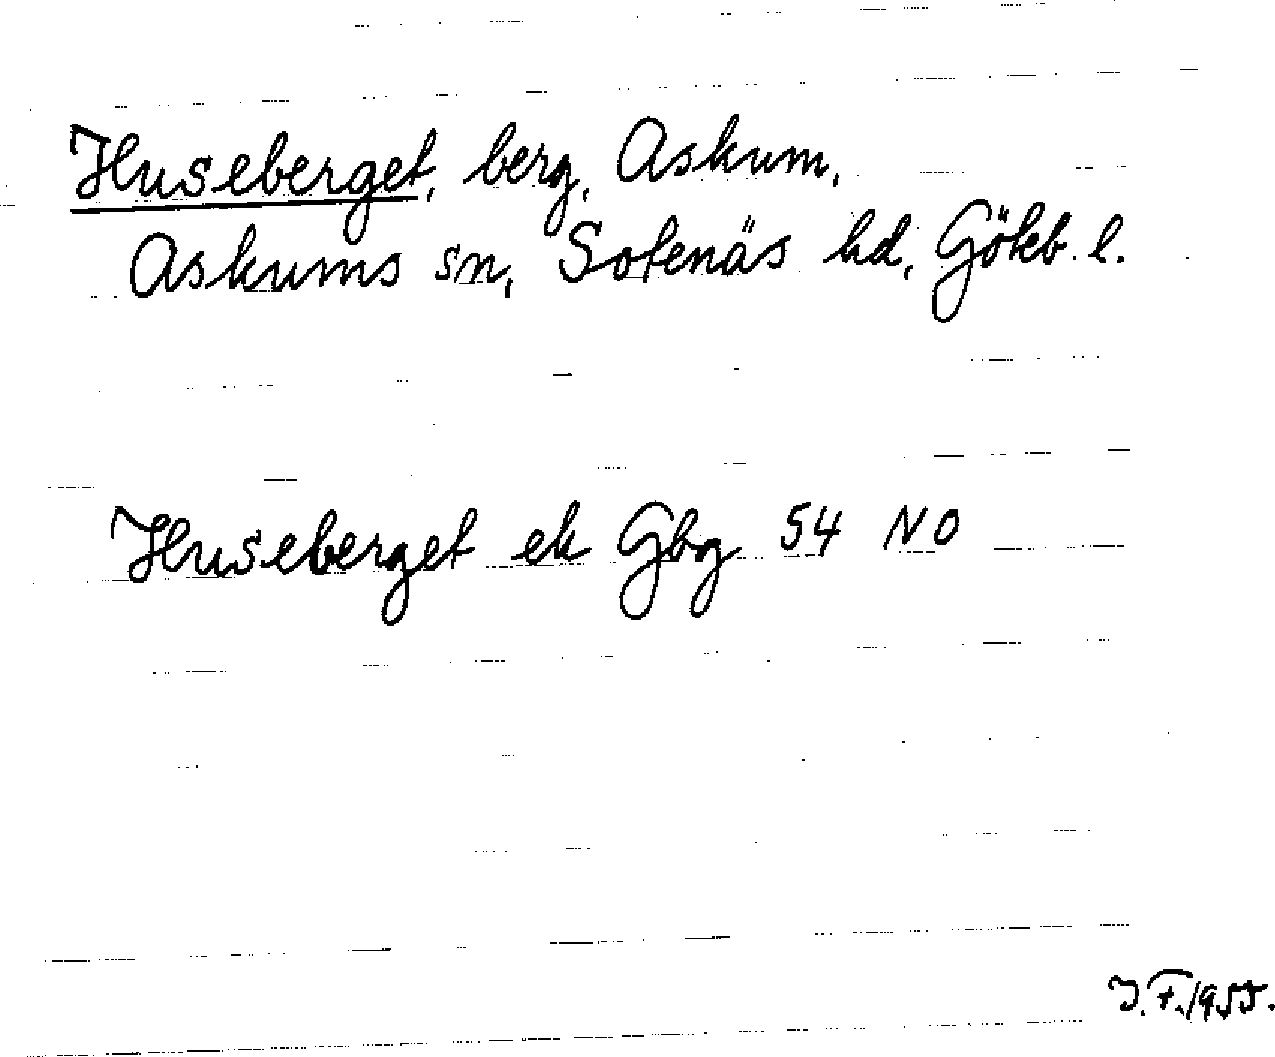 Huseberget, berg, Askum,
Askums sn, Sotenäs hd, Göteb. l.
Huseberget ek Gbg 54 NO
J. F. 1955.